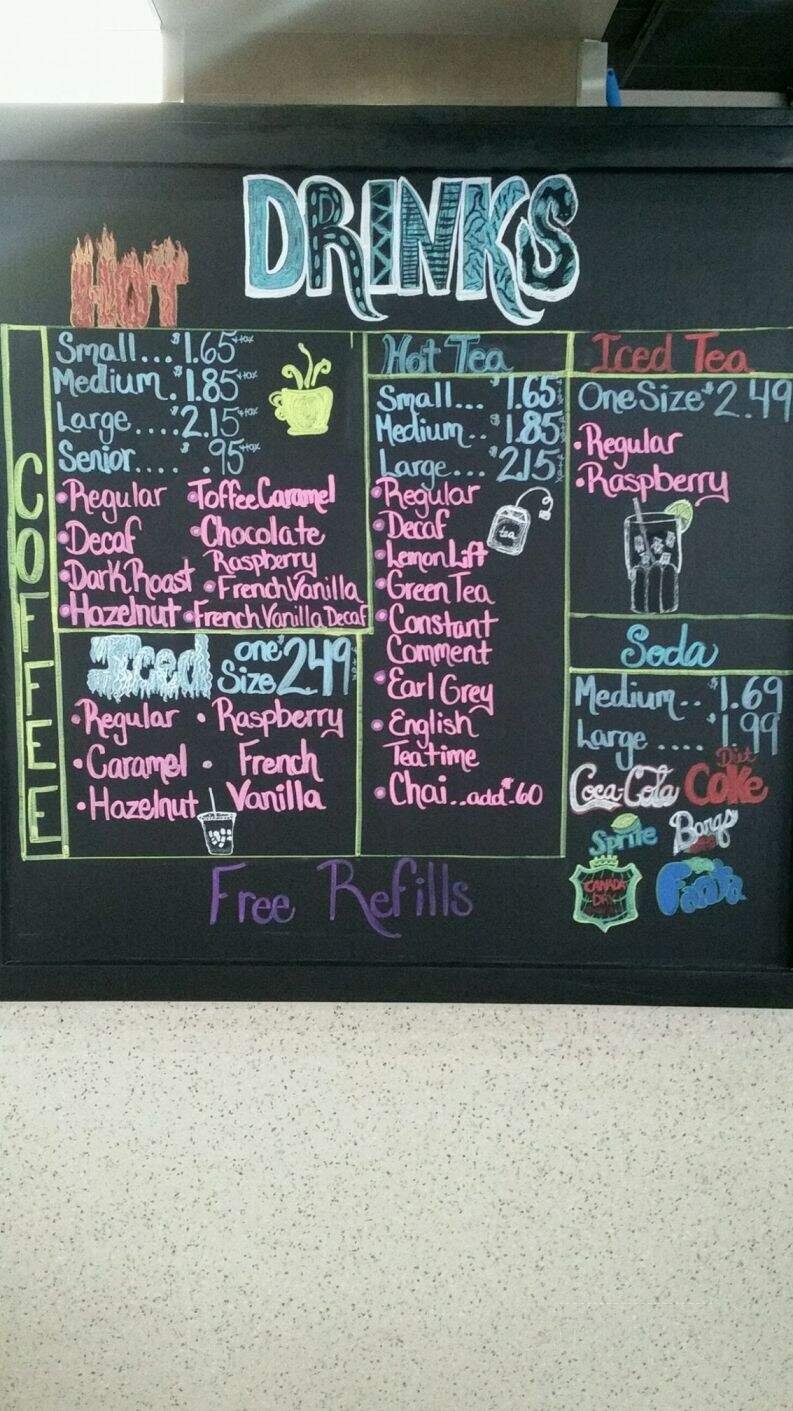 DRINKS
HOT
COFFEE
Small... $1.65 +tax
Medium. $1.85 +tax
Large.... $2.15 +tax
Senior.... $ .95 +tax
• Regular
• Decaf
• Dark Roast
• Hazelnut
• Toffee Caramel
• Chocolate
Raspberry
• French Vanilla
• French Vanilla Decaf
Iced one Size $2.49
• Regular
• Caramel
• Hazelnut
• Raspberry
• French
Vanilla
Hot Tea
Small... $1.65
Medium.. $1.85
Large... $2.15
• Regular
• Decaf
• Lemon Lift
• Green Tea
• Constant
Comment
• Earl Grey
• English
Teatime
• Chai..add $.60
tea
Iced Tea
One Size $2.49
• Regular
• Raspberry
Soda
Medium.. $1.69
Large .... $1.99
Coca-Cola
Diet
Coke
Sprite
Barqs
CANADA
DRY
Fanta
Free Refills